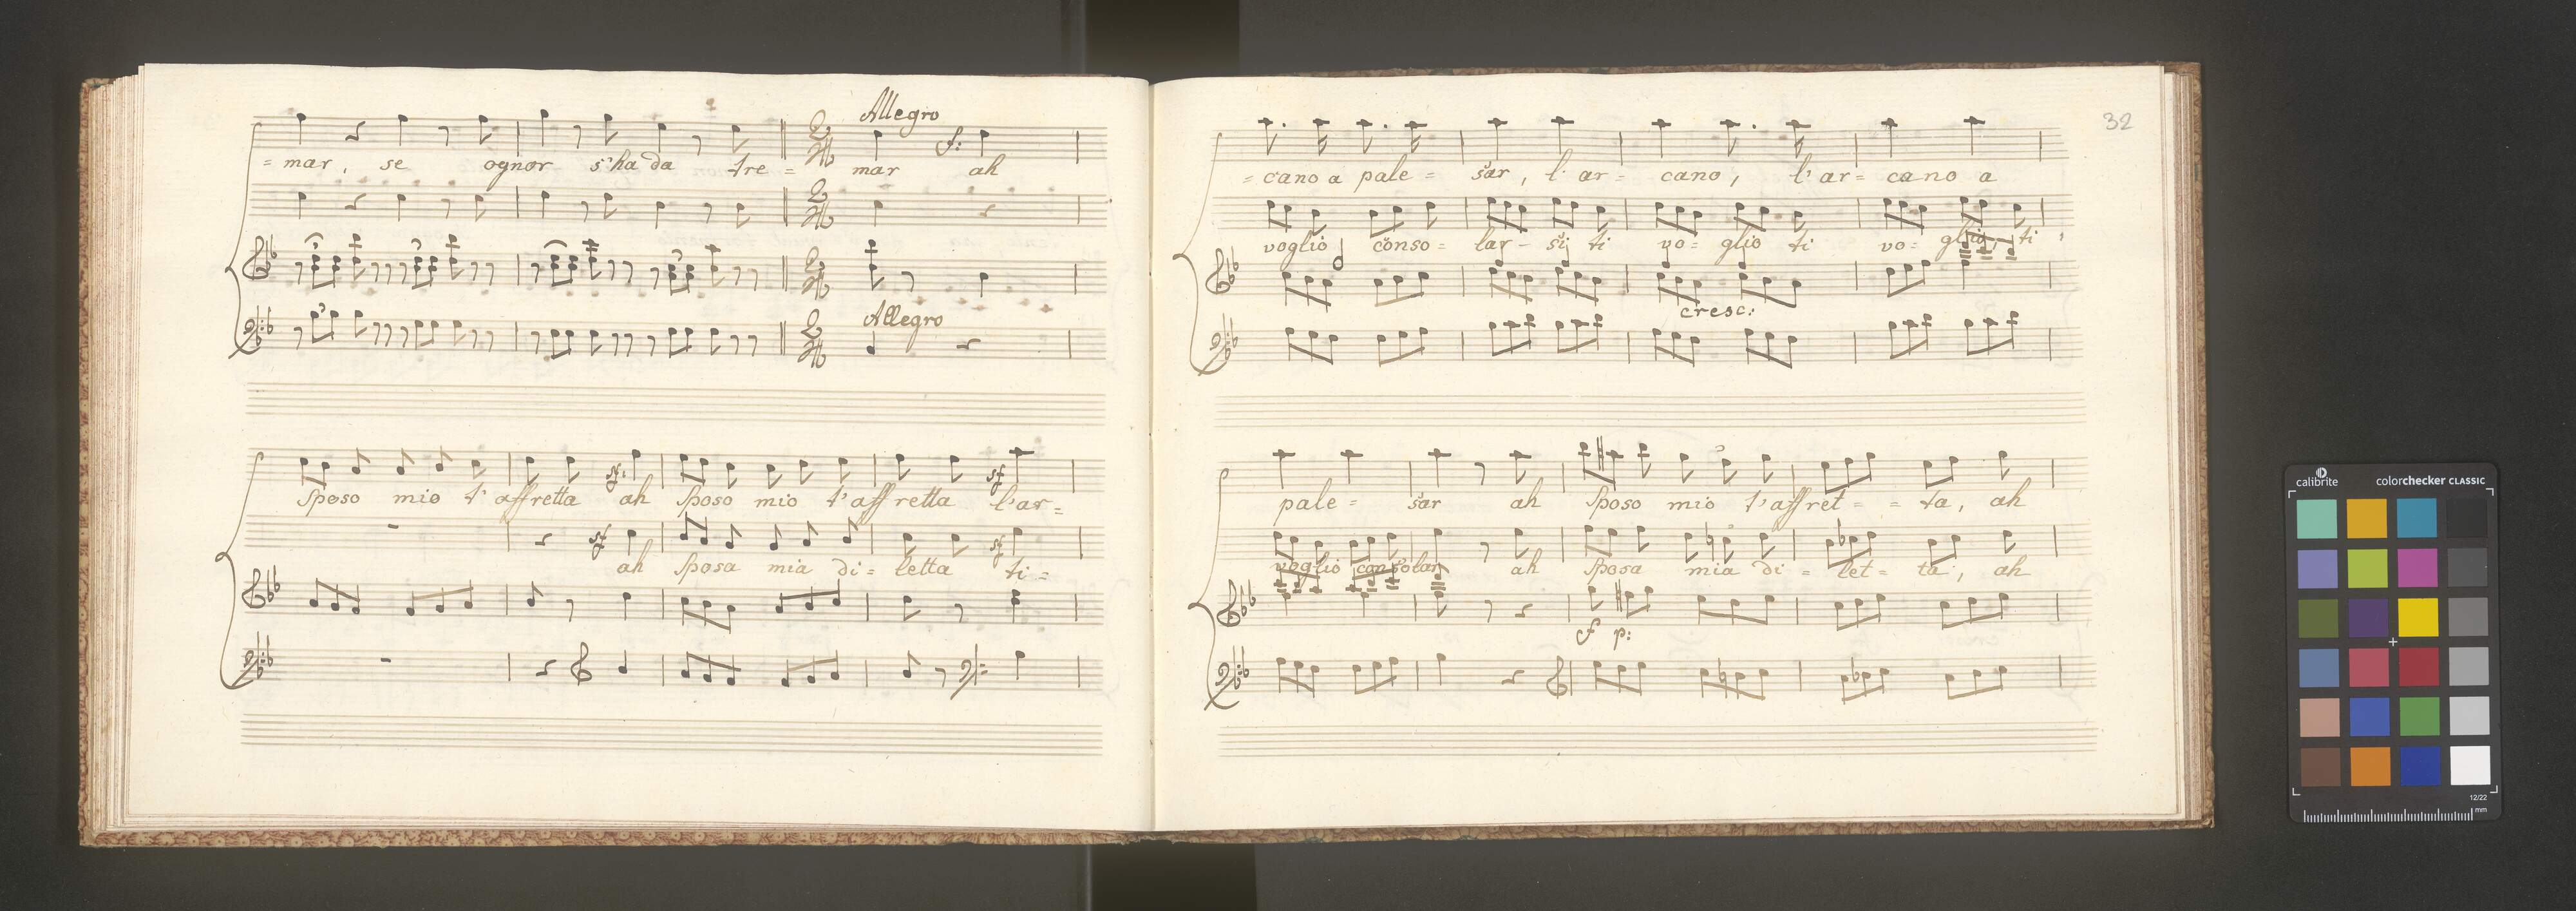 Allegro
f:
= mar, se ognor s'ha da tre = mar ah
Allegro
sf: sf
sposo mio t'affretta ah sposo mio t'affretta l'ar =
sf sf
ah sposa mia di = letta ti =
32
= cano a pale = sar, l'ar = cano, l'ar = cano a
voglio conso = lar - si ti vo = glio ti vo = glio, ti
cresc:
pale = sar ah sposo mio t'affret = = ta, ah
voglio consolar ah sposa mia di = let = ta, ah
f p:
calibrite colorchecker CLASSIC
12/22
mm